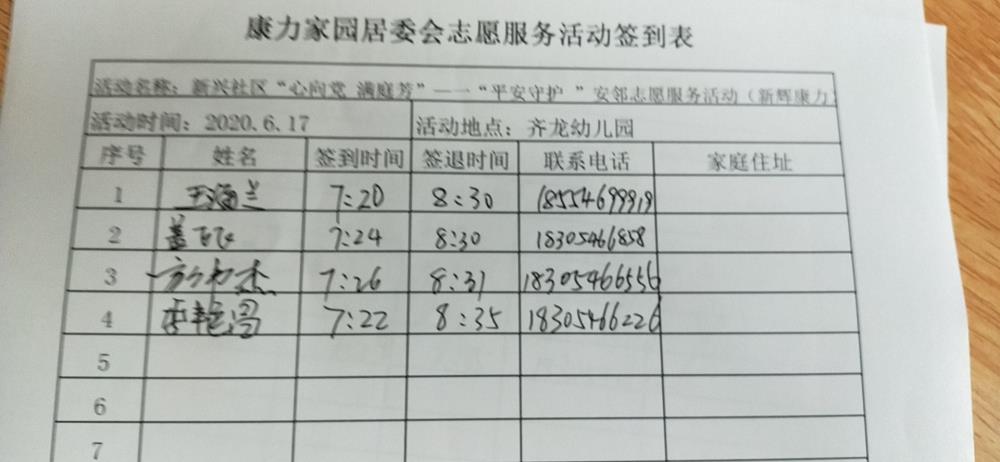 康力家园居委会志愿服务活动签到表
活动名称：新兴社区“心向党 满庭芳”——“平安守护 ”安邻志愿服务活动（新辉康力）
活动时间：2020.6.17 活动地点：齐龙幼儿园
序号 姓名 签到时间 签退时间 联系电话 家庭住址
1 王海兰 7:20 8:30 18554699919
2 盖 7:24 8:30 18305466858
3 杰 7:26 8:31 18305466556
4 李艳 7:22 8:35 18305466226
5
6
7